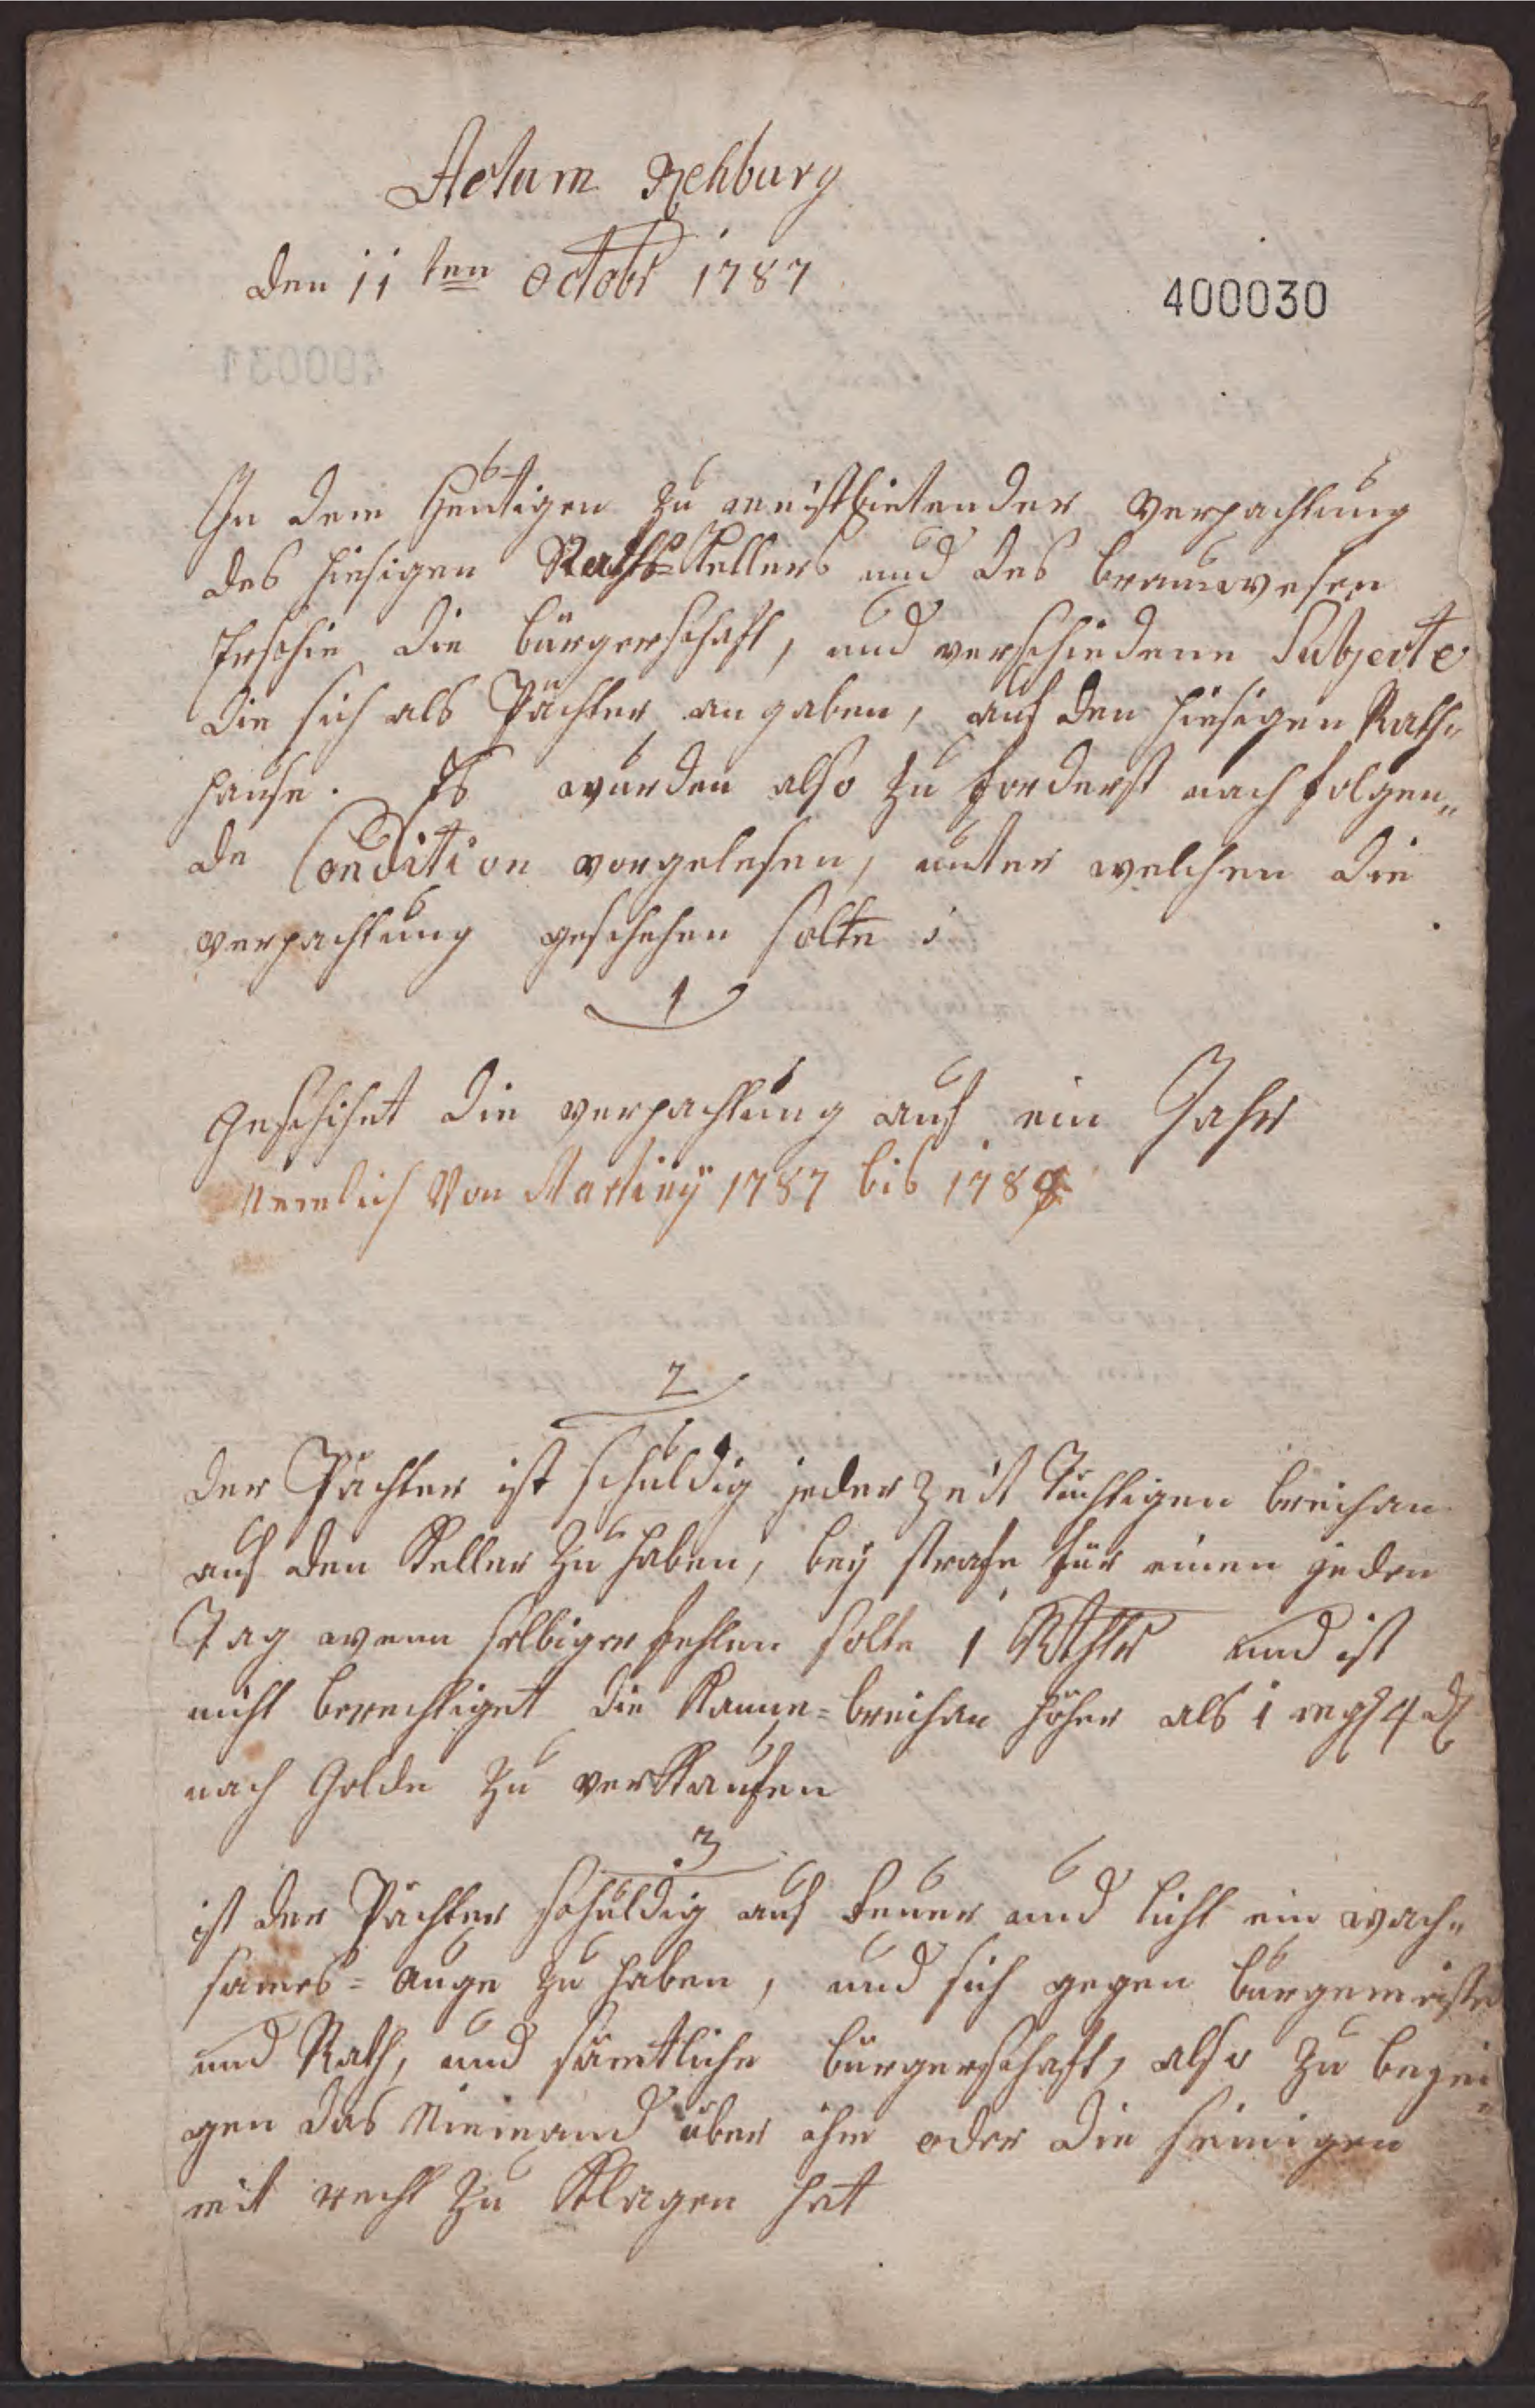 Actum Rehburg
den 11 ten Octobr 1787
400030
In dem Heutigen zu meistbietender Verpachtung
des hiesigen Raths-Kellers und des brauwesen
Erschin die bürgerschaft, und verschiedene Subjecte
die sich als Pächter angaben, auf den hiesigen Rath„
hause. Es wurden also zu forderst nach folgen„
de Condition vorgelesen, unter welchen die
verpachtung geschehen solte:
1
Geschihet die verpachtung auf ein Jahr
Nemlich Von Martiny 1787 bis 1788
2
der Pächter ist schuldig jeder Zeit Tüchtigen breihan
auf den Keller zu haben, bey strafe für einen jeden
Tag wenn selbiger fehlen solte 1 Rthlr und ist
nicht berechtiget die Kanne=breihan höher als 1 mgl 4 d
nach Golde zu verKaufen
3
ist der Pächter schuldig auf feuer und licht ein wach„
sames= auge zu haben, und sich gegen bürgemeister
und Rath, und sämtliche bürgerschaft, also zu bezei„
gen das Niemand über ihm oder die seinigen
mit recht zu Klagen hat